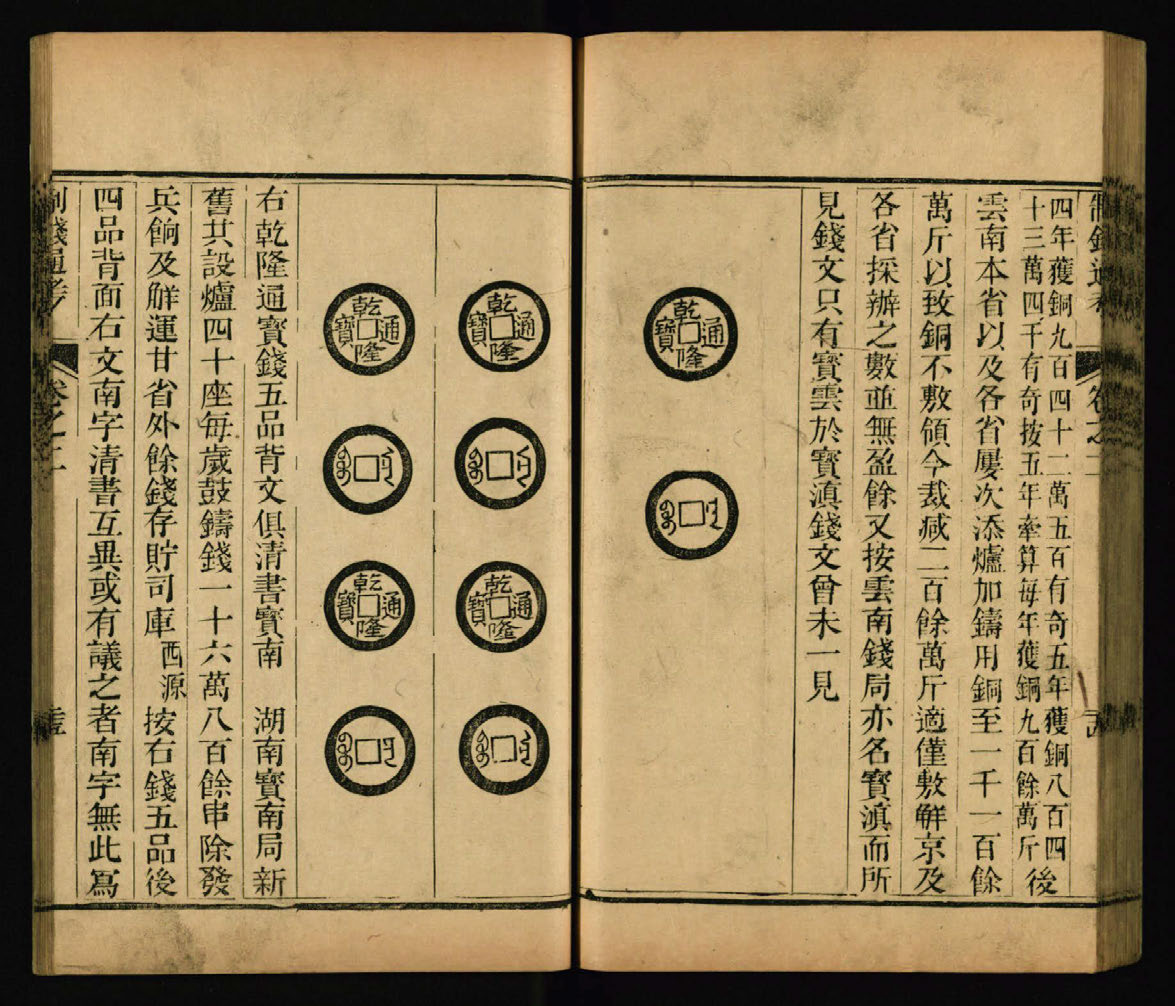 制錢通考 卷之二
四年獲銅九百四十二萬五百有奇五年獲銅八百四
十三萬四千有奇按五年牽算每年獲銅九百餘萬斤後
雲南本省以及各省屢次添爐加鑄用銅至一千一百餘
萬斤以致銅不敷領今裁减二百餘萬斤適僅敷觧京及
各省採辦之數並無盈餘又按雲南錢局亦名寳滇而所
見錢文只有寳雲於寳滇錢文曾未一見
乾隆通寳
乾隆通寳
乾隆通寳
乾隆通寳
乾隆通寳
右乾隆通寳錢五品背文俱清書寳南 湖南寳南局新
舊共設爐四十座每歲鼓鑄錢一十六萬八百餘串除發
兵餉及觧運甘省外餘錢存貯司庫西源按右錢五品後
四品背面右文南字清書互異或有議之者南字無此寫
制錢通考 卷之二